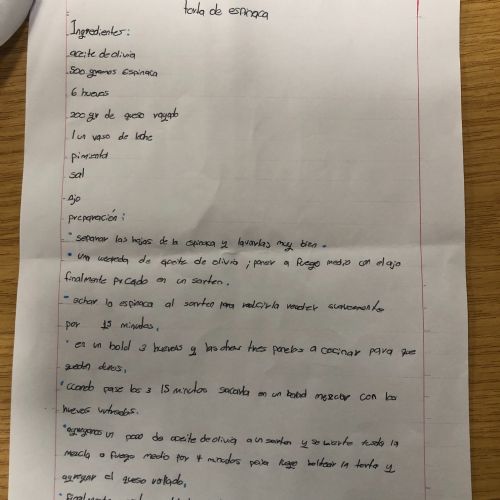 torta de espinaca
Ingredientes:
aceite de olivia
500 gramos espinaca
6 huevos
200 gr de queso rayado
1 un vaso de leche
pimienta
sal
Ajo
preparación:
• separar las hojas de la espinaca y lavarlas muy bien.
• una de aceite de olivio; poner a fuego medio con el ajo
finalmente picado en un sarten.
• echar la espinaca al sarten para reducirla suavemente
por 15 minutos.
• en un bold 3 huevos y las otras tres a cocinar para que
queden duros.
• cuando pase los 3 15 minutos sacarla en un bold mezclar con los
huevos
• agregamos un poco de aceite de olivia a un sarten y se toda la
mezcla a fuego medio por 7 minutos para luego voltear la torta y
agregar el queso rallado.
• finalmente